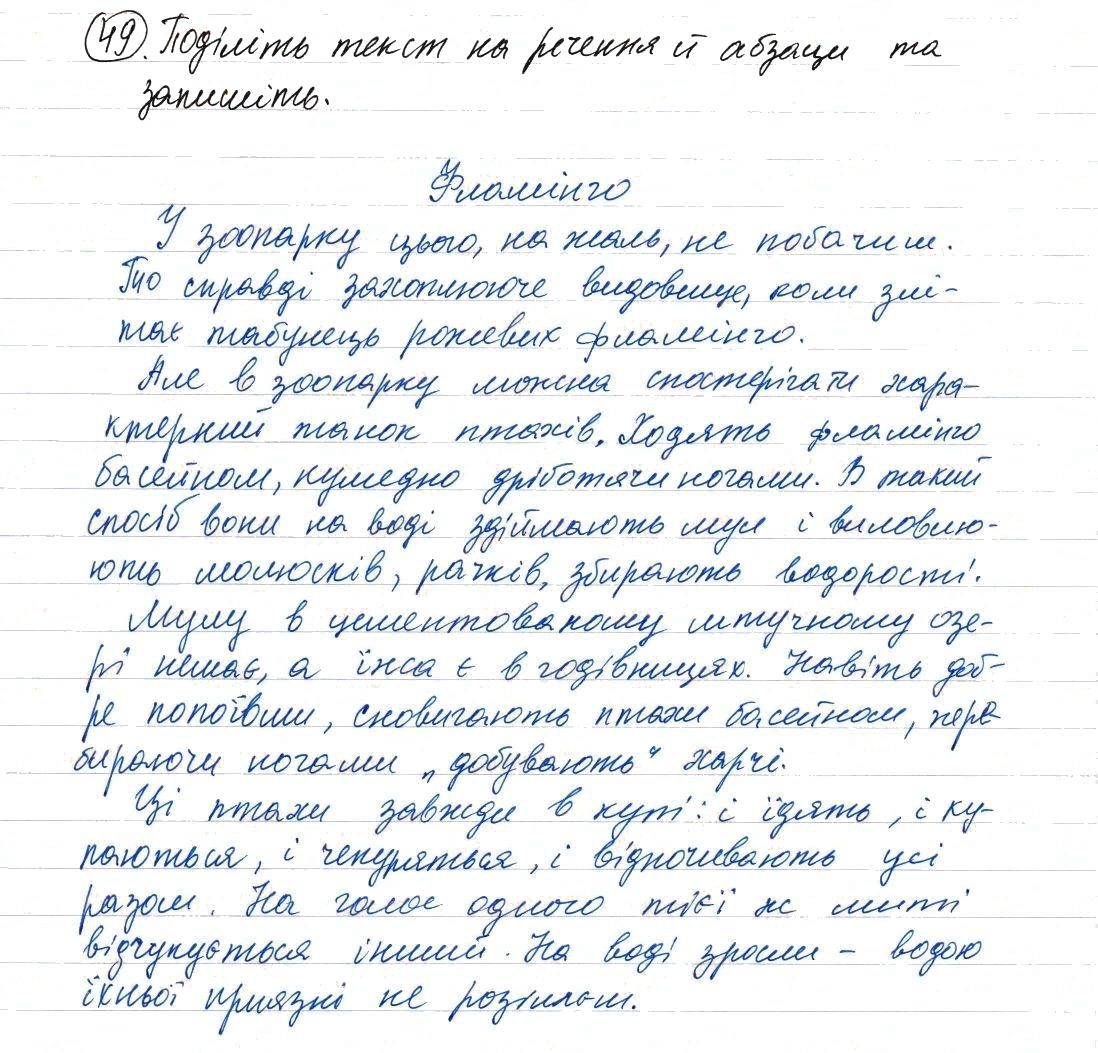 49. Поділіть текст на речення й абзаци та
запишіть.
Фламінго
У зоопарку цього, на жаль, не побачиш.
То справді захоплююче видовище, коли злі-
тає табунець рожевих фламінго.
Але в зоопарку можна спостерігати хара-
ктерний танок птахів. Ходять фламінго
басейном, кумедно дріботячи ногами. В такий
спосіб вони на воді здіймають мул і виловлю-
ють молюсків, рачків, збирають водорості.
Мулу в цементованому штучному озе-
рі немає, а їжа є в годівницях. Навіть доб-
ре попоївши, сновигають птахи басейном, пере-
бираючи ногами „добувають“ харчі.
Ці птахи завжди в купі: і їдять, і ку-
паються, і чепуряться, і відпочивають усі
разом. На голос одного тієї ж миті
відгукується інший. На воді зросли - водою
їхньої приязні не розіллєш.